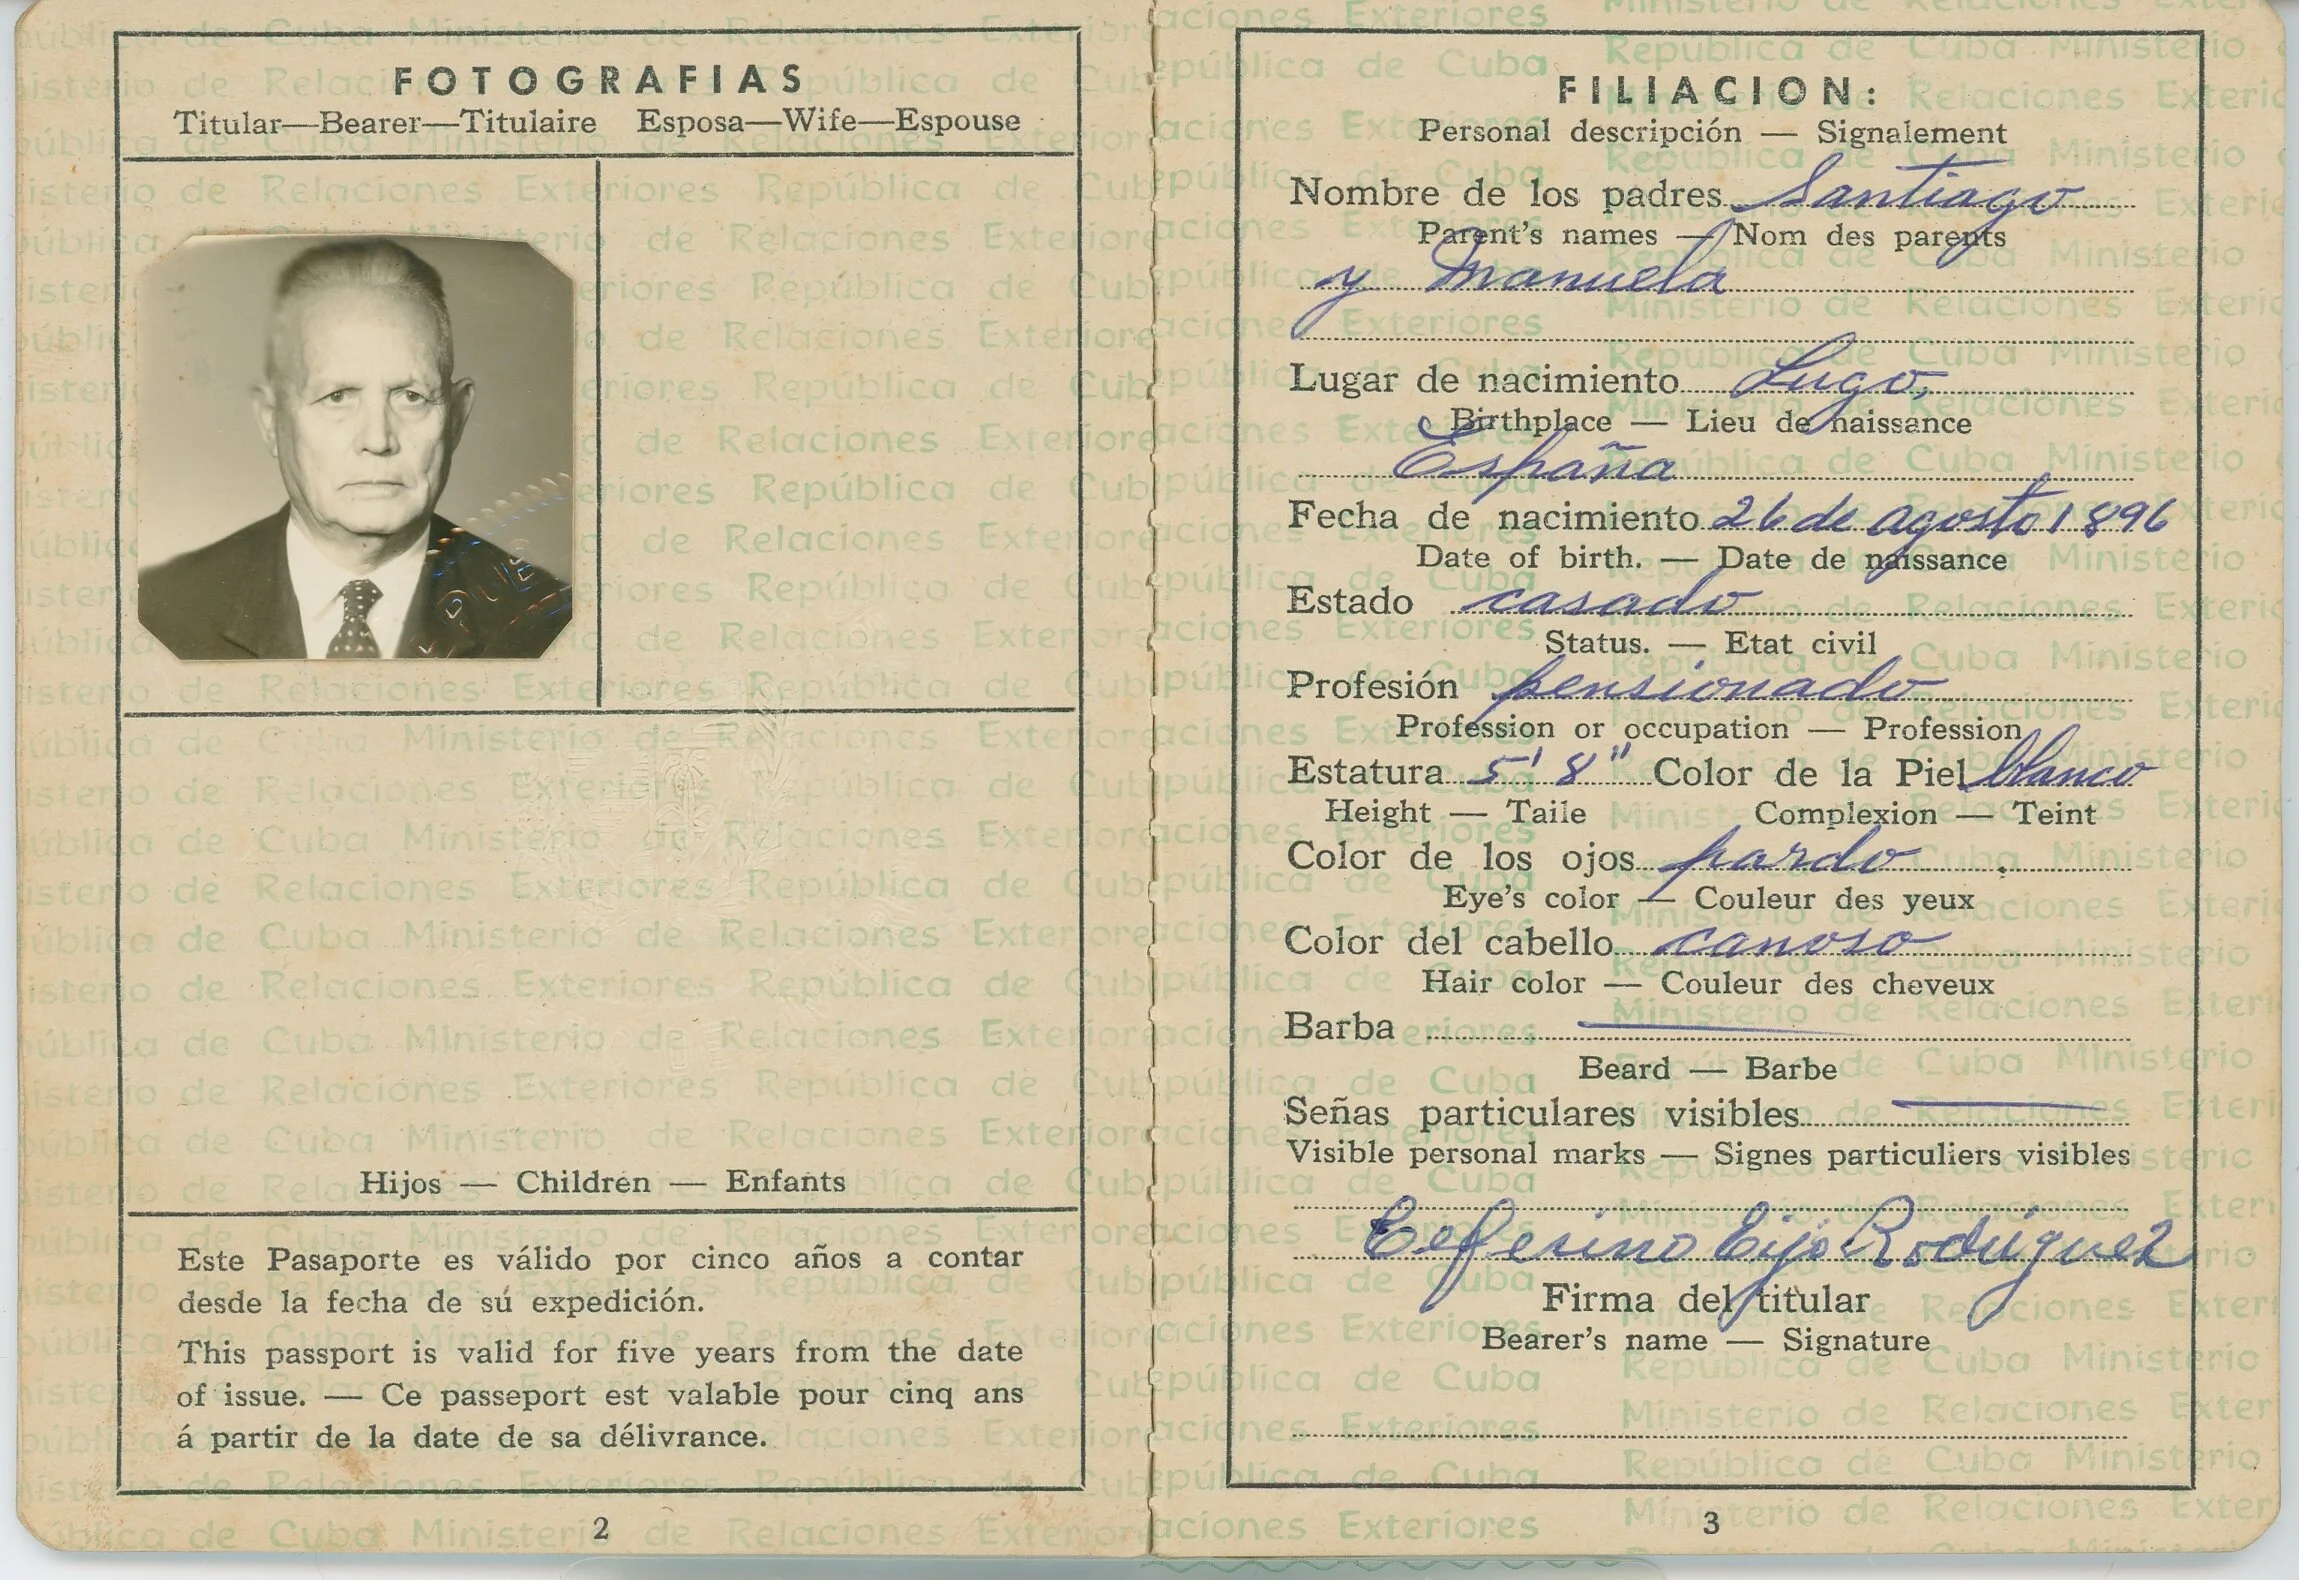 FOTOGRAFIAS
Titular—Bearer—Titulaire Esposa—Wife—Espouse
Hijos — Children — Enfants
Este Pasaporte es válido por cinco años a contar
desde la fecha de sú expedición.
This passport is valid for five years from the date
of issue. — Ce passeport est valable pour cinq ans
á partir de la date de sa délivrance.
2
FILIACION:
Personal descripción — Signalement
Nombre de los padres Santiago
Parent's names — Nom des parents
y Manuela
Lugar de nacimiento Lugo,
Birthplace — Lieu de naissance
España
Fecha de nacimiento 26 de agosto 1896
Date of birth. — Date de naissance
Estado casado
Status. — Etat civil
Profesión pensionado
Profession or occupation — Profession
Estatura 5' 8" Color de la Piel blanco
Height — Taile Complexion — Teint
Color de los ojos pardo
Eye's color — Couleur des yeux
Color del cabello canoso
Hair color — Couleur des cheveux
Barba
Beard — Barbe
Señas particulares visibles
Visible personal marks — Signes particuliers visibles
Ceferino Cijo Rodriguez
Firma del titular
Bearer's name — Signature
3